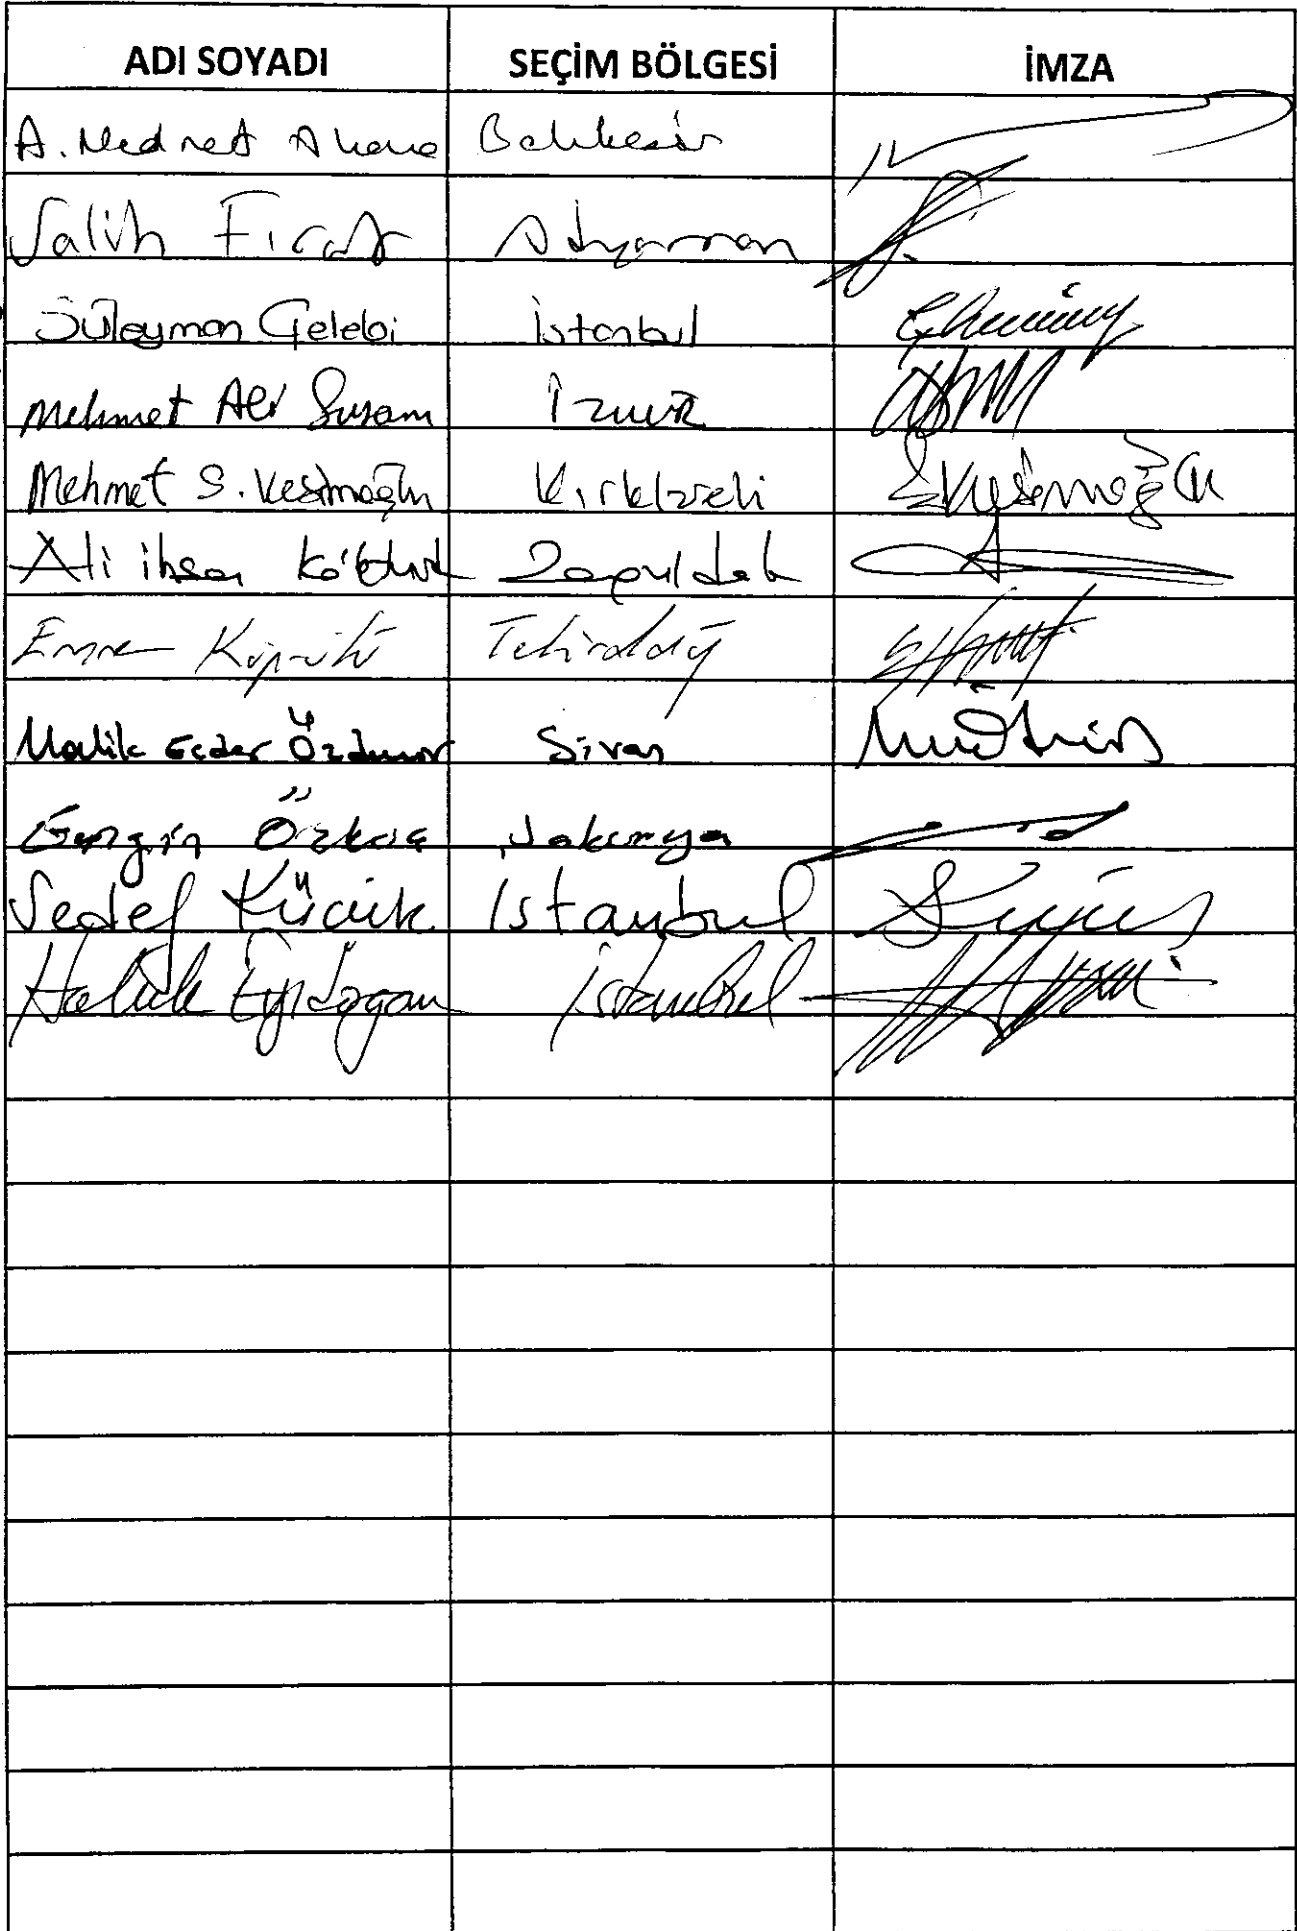 ADI SOYADI SEÇİM BÖLGESİ İMZA
A. Nedret Akova Balıkesir
Salih Fırat Adıyaman
Süleyman Çelebi İstanbul
Mehmet Ali Susam İzmir
Mehmet S. Kesimoğlu Kırklareli
Ali ihsan Köktürk Zonguldak
Emre Köprülü Tekirdağ
Malik Ecder Özdemir Sivas
Engin Özkoç Sakarya
Sedef Küçük Istanbul
Haluk Eyidoğan İstanbul